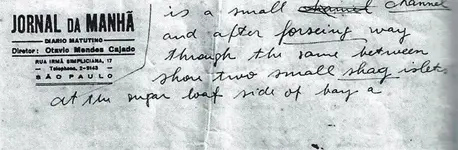 JORNAL DA MANHÃ
DIARIO MATUTINO
Diretor: Otavio Mendes Cajado
RUA IRMÃ SIMPLICIANA, 17
Telephone, 2-9143
SÃO PAULO
is a small channel channel
and after forseing way
through the same between
show two small shag islets
at the sugar loaf side of bay a